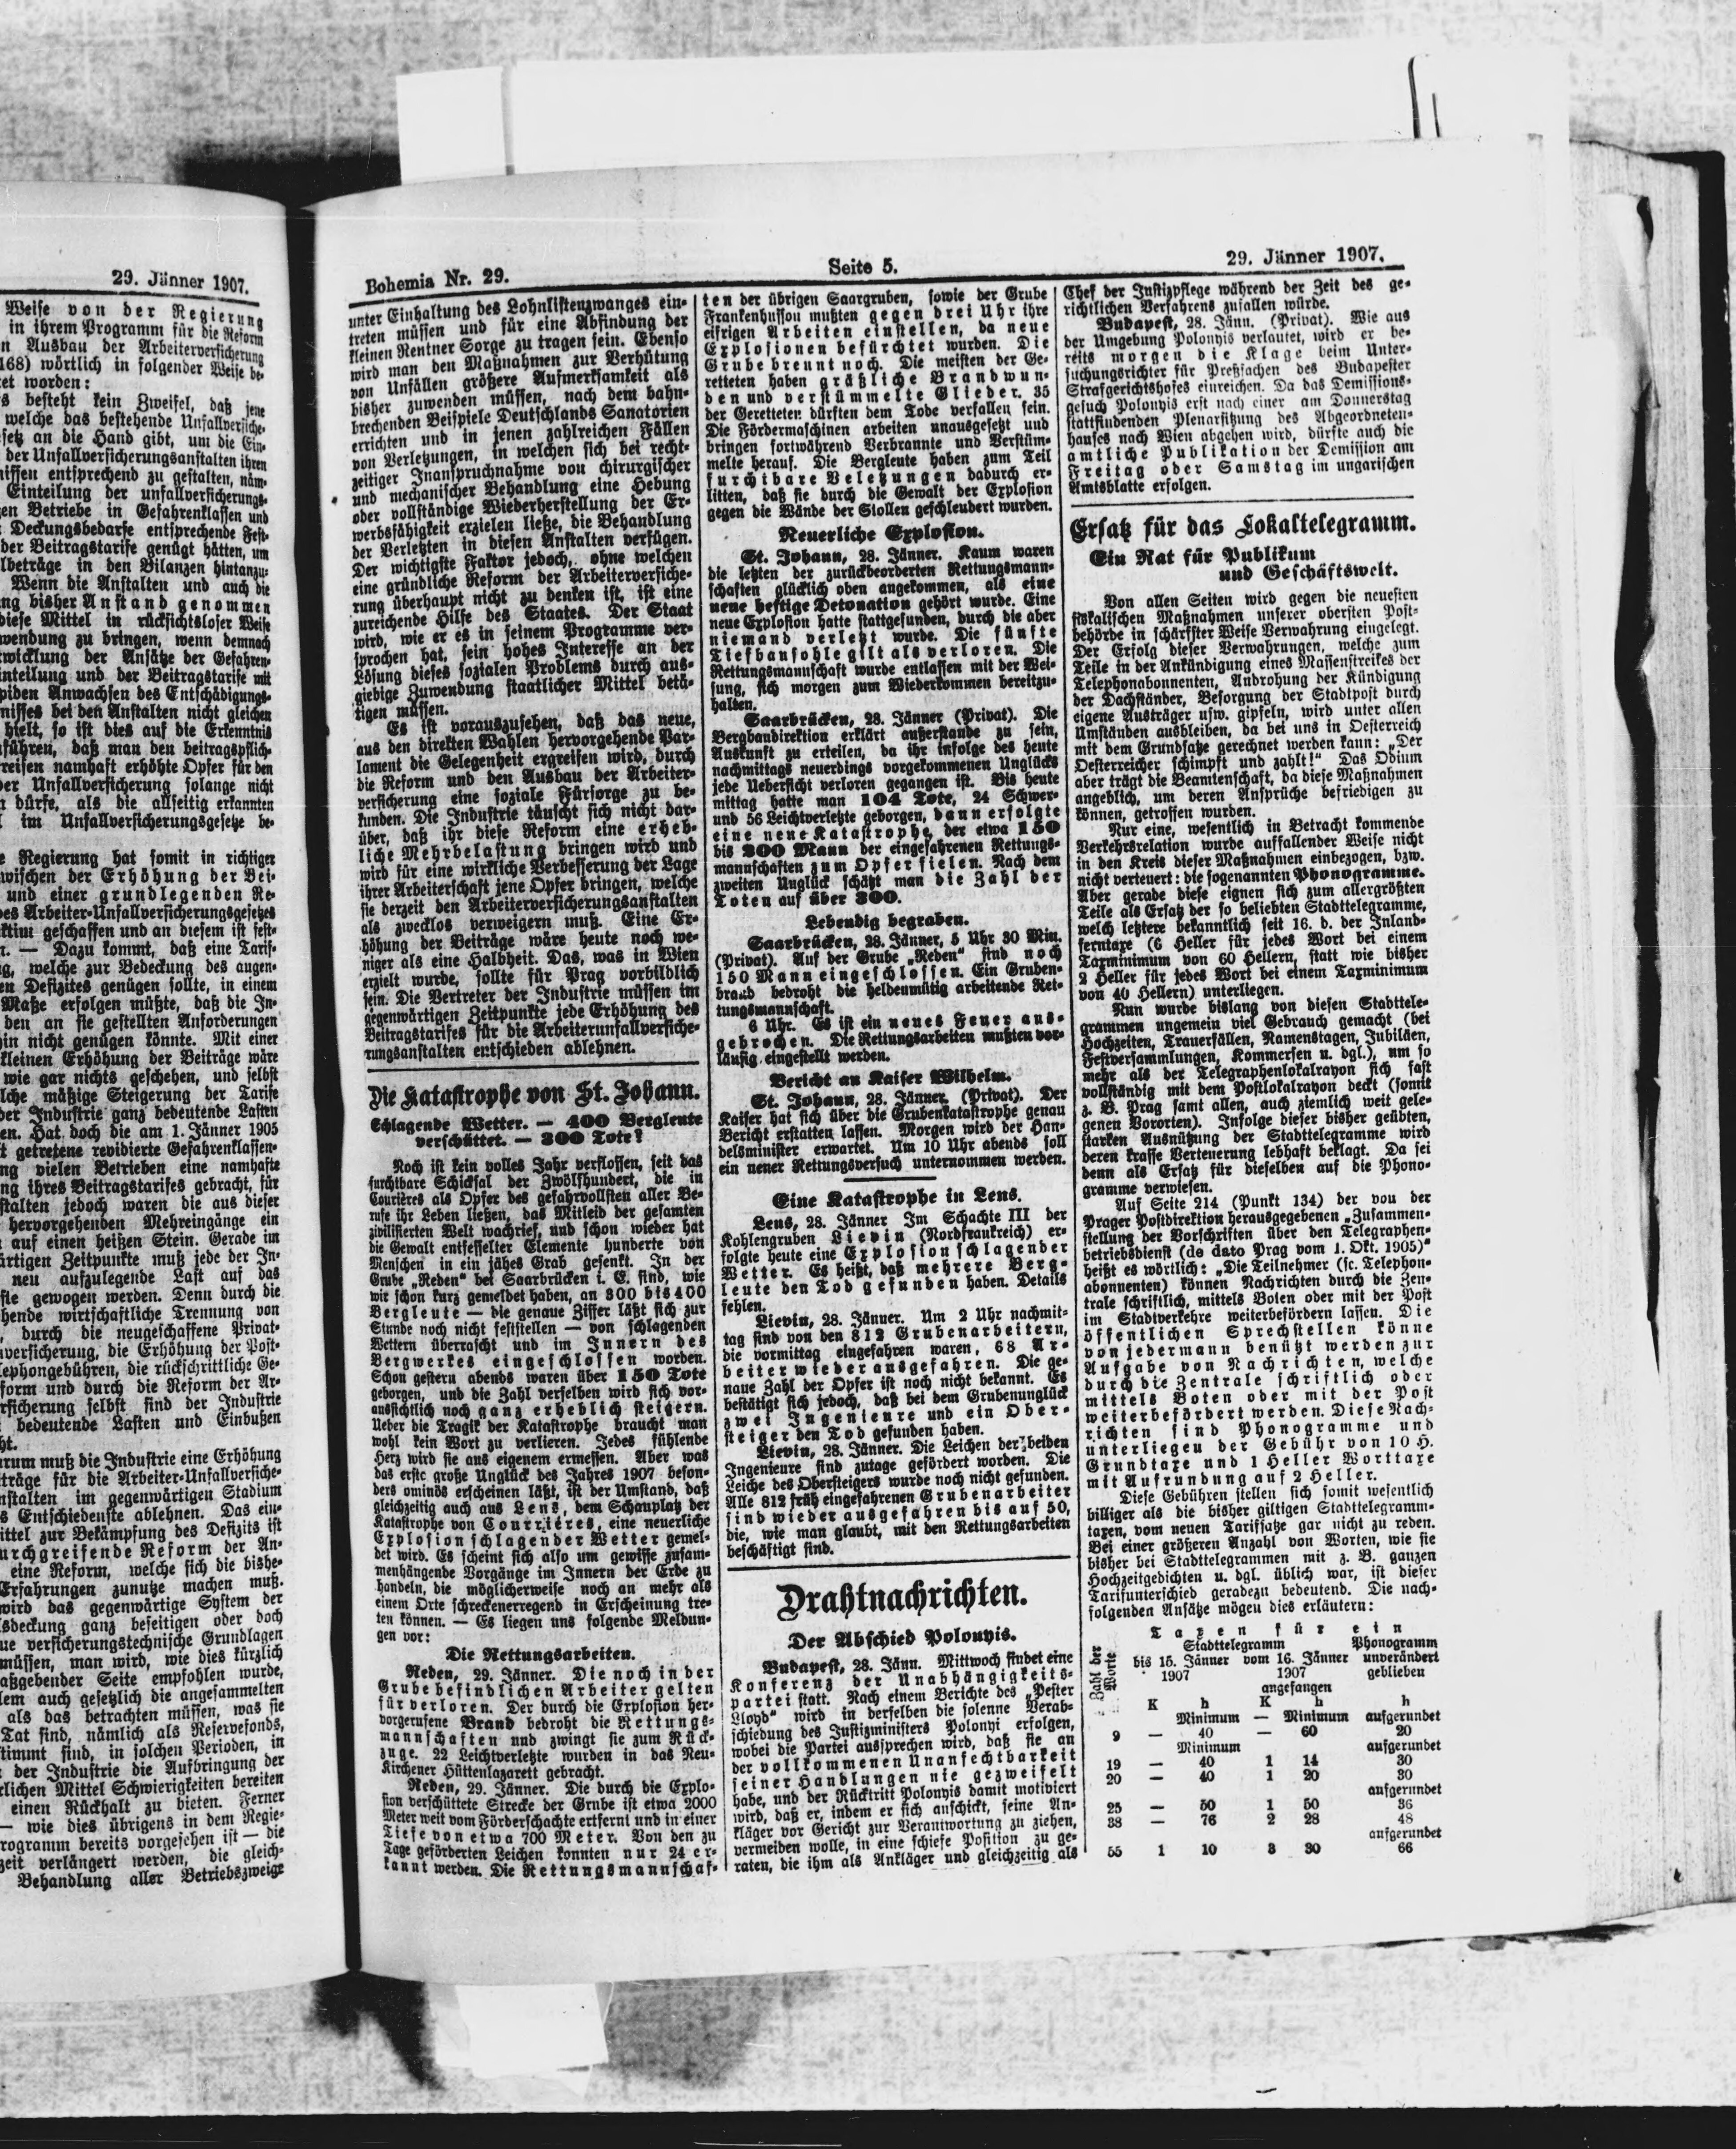 29. Jänner 1907.
Weise von der Regierung
in ihrem Programm für die Reform
n Ausbau der Arbeiterversicherung
168) wörtlich in folgender Weise be-
tet worden:
s besteht kein Zweifel, daß jene
welche das bestehende Unfallversiche-
setz an die Hand gibt, um die Ein-
der Unfallversicherungsanstalten ihren
nissen entsprechend zu gestalten, näm-
Einteilung der unfallversicherungs-
en Betriebe in Gefahrenklassen und
Deckungsbedarfe entsprechende Fest-
der Beitragstarife genügt hätten, um
lbeträge in den Bilanzen hintanzu-
Wenn die Anstalten und auch die
ng bisher Anstand genommen
diese Mittel in rücksichtsloser Weise
wendung zu bringen, wenn demnach
twicklung der Ansätze der Gefahren-
inteilung und der Beitragstarife mit
piden Anwachsen des Entschädigungs-
nisses bei den Anstalten nicht gleichen
hielt, so ist dies auf die Erkenntnis
führen, daß man den beitragspflich-
reisen namhaft erhöhte Opfer für den
er Unfallversicherung solange nicht
n dürfe, als die allseitig erkannten
l im Unfallversicherungsgesetze be-
e Regierung hat somit in richtiger
wischen der Erhöhung der Bei-
und einer grundlegenden Re-
des Arbeiter-Unfallversicherungsgesetzes
ktim geschaffen und an diesem ist fest-
n. — Dazu kommt, daß eine Tarif-
g, welche zur Bedeckung des augen-
en Defizites genügen sollte, in einem
Maße erfolgen müßte, daß die In-
den an sie gestellten Anforderungen
in nicht genügen könnte. Mit einer
kleinen Erhöhung der Beiträge wäre
wie gar nichts geschehen, und selbst
lche mäßige Steigerung der Tarife
der Industrie ganz bedeutende Lasten
en. Hat doch die am 1. Jänner 1905
t getretene revidierte Gefahrenklassen-
ng vielen Betrieben eine namhafte
ng ihres Beitragstarifes gebracht, für
stalten jedoch waren die aus dieser
hervorgehenden Mehreingänge ein
auf einen heißen Stein. Gerade im
ärtigen Zeitpunkte muß jede der In-
neu aufzulegende Last auf das
ste gewogen werden. Denn durch die
hende wirtschaftliche Trennung von
, durch die neugeschaffene Privat-
versicherung, die Erhöhung der Post-
lephongebühren, die rückschrittliche Ge-
form und durch die Reform der Ar-
rsicherung selbst sind der Industrie
bedeutende Lasten und Einbußen
ht.
rum muß die Industrie eine Erhöhung
träge für die Arbeiter-Unfallversiche-
nstalten im gegenwärtigen Stadium
s Entschiedenste ablehnen. Das ein-
ittel zur Bekämpfung des Defizits ist
urchgreifende Reform der An-
eine Reform, welche sich die bishe-
Erfahrungen zunutze machen muß.
wird das gegenwärtige System der
lsdeckung ganz beseitigen oder doch
ue versicherungstechnische Grundlagen
müssen, man wird, wie dies kürzlich
aßgebender Seite empfohlen wurde,
lem auch gesetzlich die angesammelten
als das betrachten müssen, was sie
Tat sind, nämlich als Reservefonds,
timmt sind, in solchen Perioden, in
der Industrie die Aufbringung der
rlichen Mittel Schwierigkeiten bereiten
einen Rückhalt zu bieten. Ferner
— wie dies übrigens in dem Regie-
rogramm bereits vorgesehen ist — die
zeit verlängert werden, die gleich-
Behandlung aller Betriebszweige
Bohemia Nr. 29.
Seite 5.
29. Jänner 1907.
unter Einhaltung des Lohnlistenzwanges ein-
treten müssen und für eine Abfindung der
kleinen Rentner Sorge zu tragen sein. Ebenso
wird man den Maßnahmen zur Verhütung
von Unfällen größere Aufmerksamkeit als
bisher zuwenden müssen, nach dem bahn-
brechenden Beispiele Deutschlands Sanatorien
errichten und in jenen zahlreichen Fällen
von Verletzungen, in welchen sich bei recht-
zeitiger Inanspruchnahme von chirurgischer
und mechanischer Behandlung eine Hebung
oder vollständige Wiederherstellung der Er-
werbsfähigkeit erzielen ließe, die Behandlung
der Verletzten in diesen Anstalten verfügen.
Der wichtigste Faktor jedoch, ohne welchen
eine gründliche Reform der Arbeiterversiche-
rung überhaupt nicht zu denken ist, ist eine
zureichende Hilfe des Staates. Der Staat
wird, wie er es in seinem Programme ver-
sprochen hat, sein hohes Interesse an der
Lösung dieses sozialen Problems durch aus-
giebige Zuwendung staatlicher Mittel betä-
tigen müssen.
Es ist vorauszusehen, daß das neue,
aus den direkten Wahlen hervorgehende Par-
lament die Gelegenheit ergreifen wird, durch
die Reform und den Ausbau der Arbeiter-
versicherung eine soziale Fürsorge zu be-
kunden. Die Industrie täuscht sich nicht dar-
über, daß ihr diese Reform eine erheb-
liche Mehrbelastung bringen wird und
wird für eine wirkliche Verbesserung der Lage
ihrer Arbeiterschaft jene Opfer bringen, welche
sie derzeit den Arbeiterversicherungsanstalten
als zwecklos verweigern muß. Eine Er-
höhung der Beiträge wäre heute noch we-
niger als eine Halbheit. Das, was in Wien
erzielt wurde, sollte für Prag vorbildlich
sein. Die Vertreter der Industrie müssen im
gegenwärtigen Zeitpunkte jede Erhöhung des
Beitragstarifes für die Arbeiterunfallversiche-
rungsanstalten entschieden ablehnen.
Die Katastrophe von St. Johann.
Schlagende Wetter. — 400 Bergleute
verschüttet. — 300 Tote?
Noch ist kein volles Jahr verflossen, seit das
furchtbare Schicksal der Zwölfhundert, die in
Courières als Opfer des gefahrvollsten aller Be-
rufe ihr Leben ließen, das Mitleid der gesamten
zivilisierten Welt wachrief, und schon wieder hat
die Gewalt entfesselter Elemente hunderte von
Menschen in ein jähes Grab gesenkt. In der
Grube „Reden“ bei Saarbrücken i. E. sind, wie
wir schon kurz gemeldet haben, an 300 bis 400
Bergleute — die genaue Ziffer läßt sich zur
Stunde noch nicht feststellen — von schlagenden
Wettern überrascht und im Innern des
Bergwerkes eingeschlossen worden.
Schon gestern abends waren über 150 Tote
geborgen, und die Zahl derselben wird sich vor-
aussichtlich noch ganz erheblich steigern.
Ueber die Tragik der Katastrophe braucht man
wohl kein Wort zu verlieren. Jedes fühlende
Herz wird sie aus eigenem ermessen. Aber was
das erste große Unglück des Jahres 1907 beson-
ders ominös erscheinen läßt, ist der Umstand, daß
gleichzeitig auch aus Lens, dem Schauplatz der
Katastrophe von Courrières, eine neuerliche
Explosion schlagender Wetter gemel-
det wird. Es scheint sich also um gewisse zusam-
menhängende Vorgänge im Innern der Erde zu
handeln, die möglicherweise noch an mehr als
einem Orte schreckenerregend in Erscheinung tre-
ten können. — Es liegen uns folgende Meldun-
gen vor:
Die Rettungsarbeiten.
Reden, 29. Jänner. Die noch in der
Grube befindlichen Arbeiter gelten
für verloren. Der durch die Explosion her-
vorgerufene Brand bedroht die Rettungs-
mannschaften und zwingt sie zum Rück-
zuge. 22 Leichtverletzte wurden in das Neu-
Kirchener Hüttenlazarett gebracht.
Reden, 29. Jänner. Die durch die Explo-
sion verschüttete Strecke der Grube ist etwa 2000
Meter weit vom Förderschachte entfernt und in einer
Tiefe von etwa 700 Meter. Von den zu
Tage geförderten Leichen konnten nur 24 er-
kannt werden. Die Rettungsmannschaf-
ten der übrigen Saargruben, sowie der Grube
Frankenhussou mußten gegen drei Uhr ihre
eifrigen Arbeiten einstellen, da neue
Explosionen befürchtet wurden. Die
Grube brennt noch. Die meisten der Ge-
retteten haben gräßliche Brandwun-
den und verstümmelte Glieder. 35
der Geretteten dürften dem Tode verfallen sein.
Die Fördermaschinen arbeiten unausgesetzt und
bringen fortwährend Verbrannte und Verstüm-
melte herauf. Die Bergleute haben zum Teil
furchtbare Veletzungen dadurch er-
litten, daß sie durch die Gewalt der Explosion
gegen die Wände der Stollen geschleudert wurden.
Neuerliche Explosion.
St. Johann, 28. Jänner. Kaum waren
die letzten der zurückbeorderten Rettungsmann-
schaften glücklich oben angekommen, als eine
neue heftige Detonation gehört wurde. Eine
neue Explosion hatte stattgefunden, durch die aber
niemand verletzt wurde. Die fünfte
Tiefbausohle gilt als verloren. Die
Rettungsmannschaft wurde entlassen mit der Wei-
sung, sich morgen zum Wiederkommen bereitzu-
halten.
Saarbrücken, 28. Jänner (Privat). Die
Bergbaudirektion erklärt außerstande zu sein,
Auskunft zu erteilen, da ihr infolge des heute
nachmittags neuerdings vorgekommenen Unglücks
jede Uebersicht verloren gegangen ist. Bis heute
mittag hatte man 104 Tote, 24 Schwer-
und 56 Leichtverletzte geborgen, dann erfolgte
eine neue Katastrophe, der etwa 150
bis 200 Mann der eingefahrenen Rettungs-
mannschaften zum Opfer fielen. Nach dem
zweiten Unglück schätzt man die Zahl der
Toten auf über 300.
Lebendig begraben.
Saarbrücken, 28. Jänner, 5 Uhr 30 Min.
(Privat). Auf der Grube „Reden“ sind noch
150 Mann eingeschlossen. Ein Gruben-
brand bedroht die heldenmütig arbeitende Ret-
tungsmannschaft.
6 Uhr. Es ist ein neues Feuer aus-
gebrochen. Die Rettungsarbeiten mußten vor-
läufig eingestellt werden.
Bericht an Kaiser Wilhelm.
St. Johann, 28. Jänner. (Privat). Der
Kaiser hat sich über die Grubenkatastrophe genau
Bericht erstatten lassen. Morgen wird der Han-
delsminister erwartet. Um 10 Uhr abends soll
ein neuer Rettungsversuch unternommen werden.
Eine Katastrophe in Lens.
Lens, 28. Jänner Im Schachte III der
Kohlengruben Lievin (Nordfrankreich) er-
folgte heute eine Explosion schlagender
Wetter. Es heißt, daß mehrere Berg-
leute den Tod gefunden haben. Details
fehlen.
Lievin, 28. Jänuer. Um 2 Uhr nachmit-
tag sind von den 812 Grubenarbeitern,
die vormittag eingefahren waren, 68 Ar-
beiter wieder ausgefahren. Die ge-
naue Zahl der Opfer ist noch nicht bekannt. Es
bestätigt sich jedoch, daß bei dem Grubenunglück
zwei Ingenieure und ein Ober-
steiger den Tod gefunden haben.
Lievin, 28. Jänner. Die Leichen der beiden
Ingenieure sind zutage gefördert worden. Die
Leiche des Obersteigers wurde noch nicht gefunden.
Alle 812 früh eingefahrenen Grubenarbeiter
sind wieder ausgefahren bis auf 50,
die, wie man glaubt, mit den Rettungsarbeiten
beschäftigt sind.
Drahtnachrichten.
Der Abschied Polonyis.
Budapest, 28. Jänn. Mittwoch findet eine
Konferenz der Unabhängigkeits-
partei statt. Nach einem Berichte des „Pester
Lloyd“ wird in derselben die solenne Verab-
schiedung des Justizministers Polonyi erfolgen,
wobei die Partei aussprechen wird, daß sie an
der vollkommenen Unanfechtbarkeit
seiner Handlungen nie gezweifelt
habe, und der Rücktritt Polonyis damit motiviert
wird, daß er, indem er sich anschickt, seine An-
kläger vor Gericht zur Verantwortung zu ziehen,
vermeiden wolle, in eine schiefe Position zu ge-
raten, die ihm als Ankläger und gleichzeitig als
Chef der Justizpflege während der Zeit des ge-
richtlichen Verfahrens zufallen würde.
Budapest, 28. Jänn. (Privat). Wie aus
der Umgebung Polonyis verlautet, wird er be-
reits morgen die Klage beim Unter-
suchungsrichter für Preßsachen des Budapester
Strafgerichtshofes einreichen. Da das Demissions-
gesuch Polonyis erst nach einer am Donnerstag
stattfindenden Plenarsitzung des Abgeordneten-
hauses nach Wien abgehen wird, dürfte auch die
amtliche Publikation der Demission am
Freitag oder Samstag im ungarischen
Amtsblatte erfolgen.
Ersatz für das Lokaltelegramm.
Ein Rat für Publikum
und Geschäftswelt.
Von allen Seiten wird gegen die neuesten
fiskalischen Maßnahmen unserer obersten Post-
behörde in schärfster Weise Verwahrung eingelegt.
Der Erfolg dieser Verwahrungen, welche zum
Teile in der Ankündigung eines Massenstreikes der
Telephonabonnenten, Androhung der Kündigung
der Dachständer, Besorgung der Stadtpost durch
eigene Austräger usw. gipfeln, wird unter allen
Umständen ausbleiben, da bei uns in Oesterreich
mit dem Grundsatze gerechnet werden kann: „Der
Oesterreicher schimpft und zahlt!“ Das Odium
aber trägt die Beamtenschaft, da diese Maßnahmen
angeblich, um deren Ansprüche befriedigen zu
können, getroffen wurden.
Nur eine, wesentlich in Betracht kommende
Verkehrsrelation wurde auffallender Weise nicht
in den Kreis dieser Maßnahmen einbezogen, bzw.
nicht verteuert: die sogenannten Phonogramme.
Aber gerade diese eignen sich zum allergrößten
Teile als Ersatz der so beliebten Stadttelegramme,
welch letztere bekanntlich seit 16. d. der Inland-
ferntaxe (6 Heller für jedes Wort bei einem
Taxminimum von 60 Hellern, statt wie bisher
2 Heller für jedes Wort bei einem Taxminimum
von 40 Hellern) unterliegen.
Nun wurde bislang von diesen Stadttele-
grammen ungemein viel Gebrauch gemacht (bei
Hochzeiten, Trauerfällen, Namenstagen, Jubiläen,
Festversammlungen, Kommersen u. dgl.), um so
mehr als der Telegraphenlokalrayon sich fast
vollständig mit dem Postlokalrayon deckt (somit
z. B. Prag samt allen, auch ziemlich weit gele-
genen Vororten). Infolge dieser bisher geübten,
starken Ausnützung der Stadttelegramme wird
deren krasse Verteuerung lebhaft beklagt. Da sei
denn als Ersatz für dieselben auf die Phono-
gramme verwiesen.
Auf Seite 214 (Punkt 134) der von der
Prager Postdirektion herausgegebenen „Zusammen-
stellung der Vorschriften über den Telegraphen-
betriebsdienst (de dato Prag vom 1. Okt. 1905)“
heißt es wörtlich: „Die Teilnehmer (sc. Telephon-
abonnenten) können Nachrichten durch die Zen-
trale schriftlich, mittels Boten oder mit der Post
im Stadtverkehre weiterbefördern lassen. Die
öffentlichen Sprechstellen könne
von jedermann benützt werden zur
Aufgabe von Nachrichten, welche
durch die Zentrale schriftlich oder
mittels Boten oder mit der Post
weiterbefördert werden. Diese Nach-
richten sind Phonogramme und
unterliegen der Gebühr von 10 H.
Grundtaxe und 1 Heller Worttaxe
mit Aufrundung auf 2 Heller.
Diese Gebühren stellen sich somit wesentlich
billiger als die bisher giltigen Stadttelegramm-
taxen, vom neuen Tarifsatze gar nicht zu reden.
Bei einer größeren Anzahl von Worten, wie sie
bisher bei Stadttelegrammen mit z. B. ganzen
Hochzeitgedichten u. dgl. üblich war, ist dieser
Tarifunterschied geradezu bedeutend. Die nach-
folgenden Ansätze mögen dies erläutern:
Taxen für ein
Zahl der Worte
Stadttelegramm Phonogramm
bis 15. Jänner vom 16. Jänner unverändert
1907 1907 geblieben
angefangen
K h K h h
Minimum — Minimum aufgerundet
9 — 40 — 60 20
Minimum aufgerundet
19 — 40 1 14 30
20 — 40 1 20 30
aufgerundet
25 — 50 1 50 36
38 — 76 2 28 48
aufgerundet
55 1 10 3 30 66